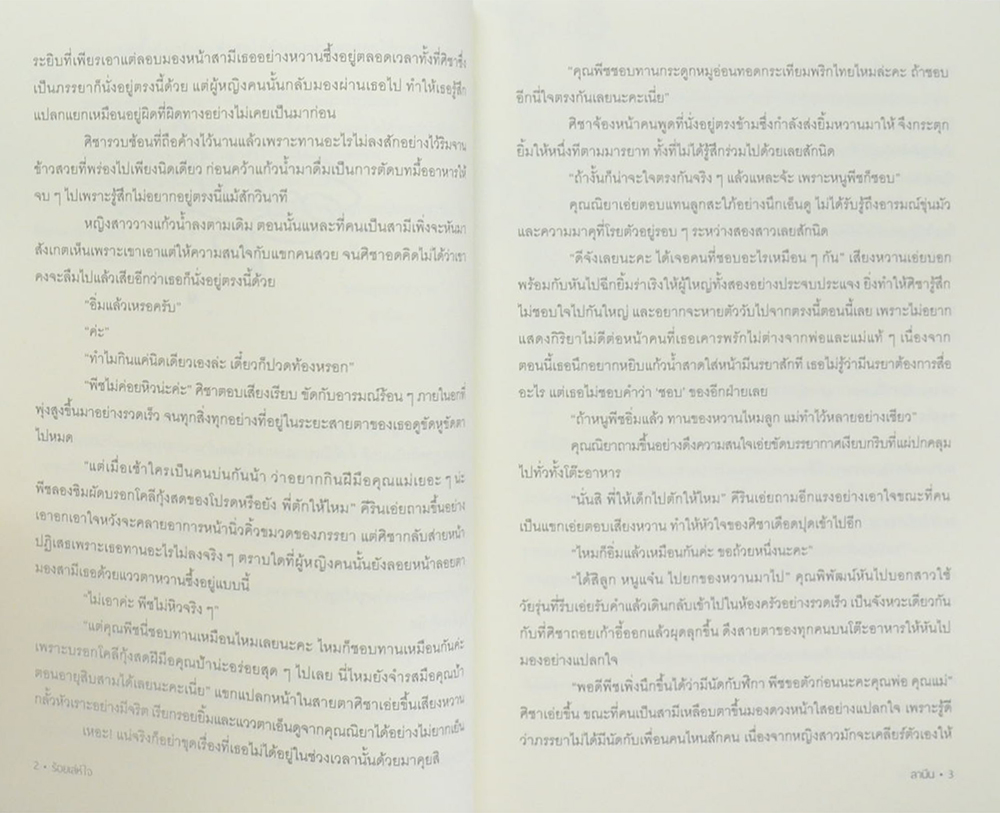 ระยิบที่เพียรเอาแต่ลอบมองหน้าสามีเธออย่างหวานซึ้งอยู่ตลอดเวลาทั้งที่ศิชาซึ่ง
เป็นภรรยาก็นั่งอยู่ตรงนี้ด้วย แต่ผู้หญิงคนนั้นกลับมองผ่านเธอไป ทำให้เธอรู้สึก
แปลกแยกเหมือนอยู่ผิดที่ผิดทางอย่างไม่เคยเป็นมาก่อน
ศิชารวบช้อนที่ถือค้างไว้นานแล้วเพราะทานอะไรไม่ลงสักอย่างไว้ริมจาน
ข้าวสวยที่พร่องไปเพียงนิดเดียว ก่อนคว้าแก้วน้ำมาดื่มเป็นการตัดบทมื้ออาหารให้
จบ ๆ ไปเพราะรู้สึกไม่อยากอยู่ตรงนี้แม้สักวินาที
หญิงสาววางแก้วน้ำลงตามเดิม ตอนนั้นแหละที่คนเป็นสามีเพิ่งจะหันมา
สังเกตเห็นเพราะเขาเอาแต่ให้ความสนใจกับแขกคนสวย จนศิชาอดคิดไม่ได้ว่าเขา
คงจะลืมไปแล้วเสียอีกว่าเธอก็นั่งอยู่ตรงนี้ด้วย
“อิ่มแล้วเหรอครับ”
“ค่ะ”
“ทำไมกินแค่นิดเดียวเองล่ะ เดี๋ยวก็ปวดท้องหรอก”
“พีชไม่ค่อยหิวน่ะค่ะ” ศิชาตอบเสียงเรียบ ขัดกับอารมณ์ร้อน ๆ ภายในอกที่
พุ่งสูงขึ้นมาอย่างรวดเร็ว จนทุกสิ่งทุกอย่างที่อยู่ในระยะสายตาของเธอดูขัดหูขัดตา
ไปหมด
“แต่เมื่อเช้าใครเป็นคนบ่นกันน้า ว่าอยากกินฝีมือคุณแม่เยอะ ๆ น่ะ
พีชลองชิมผัดบรอกโคลีกุ้งสดของโปรดหรือยัง พี่ตักให้ไหม” คีรินเอ่ยถามขึ้นอย่าง
เอาอกเอาใจหวังจะคลายอาการหน้านิ่วคิ้วขมวดของภรรยา แต่ศิชากลับส่ายหน้า
ปฏิเสธเพราะเธอทานอะไรไม่ลงจริง ๆ ตราบใดที่ผู้หญิงคนนั้นยังลอยหน้าลอยตา
มองสามีเธอด้วยแววตาหวานซึ้งอยู่แบบนี้
“ไม่เอาค่ะ พีชไม่หิวจริง ๆ”
“แต่คุณพีชนี่ชอบทานเหมือนไหมเลยนะคะ ไหมก็ชอบทานเหมือนกันค่ะ
เพราะบรอกโคลีกุ้งสดฝีมือคุณป้าน่ะอร่อยสุด ๆ ไปเลย นี่ไหมยังจำรสมือคุณป้า
ตอนอายุสิบสามได้เลยนะคะเนี่ย” แขกแปลกหน้าในสายตาศิชาเอ่ยขึ้นเสียงหวาน
กลั้วหัวเราะอย่างมีจริต เรียกรอยยิ้มและแววตาเอ็นดูจากคุณณิยาได้อย่างไม่ยากเย็น
เหอะ! แน่จริงก็อย่าขุดเรื่องที่เธอไม่ได้อยู่ในช่วงเวลานั้นด้วยมาคุยสิ
2 • ร้อยเล่ห์ใจ
“คุณพีชชอบทานกระดูกหมูอ่อนทอดกระเทียมพริกไทยไหมล่ะคะ ถ้าชอบ
อีกนี่ใจตรงกันเลยนะคะเนี่ย”
ศิชาจ้องหน้าคนพูดที่นั่งอยู่ตรงข้ามซึ่งกำลังส่งยิ้มหวานมาให้ จึงกระตุก
ยิ้มให้หนึ่งทีตามมารยาท ทั้งที่ไม่ได้รู้สึกร่วมไปด้วยเลยสักนิด
“ถ้างั้นก็น่าจะใจตรงกันจริง ๆ แล้วแหละจ้ะ เพราะหนูพีชก็ชอบ”
คุณณิยาเอ่ยตอบแทนลูกสะใภ้อย่างนึกเอ็นดู ไม่ได้รับรู้ถึงอารมณ์ขุ่นมัว
และความมาคุที่โรยตัวอยู่รอบ ๆ ระหว่างสองสาวเลยสักนิด
“ดีจังเลยนะคะ ได้เจอคนที่ชอบอะไรเหมือน ๆ กัน” เสียงหวานเอ่ยบอก
พร้อมกับหันไปฉีกยิ้มร่าเริงให้ผู้ใหญ่ทั้งสองอย่างประจบประแจง ยิ่งทำให้ศิชารู้สึก
ไม่ชอบใจไปกันใหญ่ และอยากจะหายตัววับไปจากตรงนี้ตอนนี้เลย เพราะไม่อยาก
แสดงกิริยาไม่ดีต่อหน้าคนที่เธอเคารพรักไม่ต่างจากพ่อและแม่แท้ ๆ เนื่องจาก
ตอนนี้เธอนึกอยากหยิบแก้วน้ำสาดใส่หน้ามีนรยาสักที เธอไม่รู้ว่ามีนรยาต้องการสื่อ
อะไร แต่เธอไม่ชอบคำว่า ‘ชอบ’ ของอีกฝ่ายเลย
“ถ้าหนูพีชอิ่มแล้ว ทานของหวานไหมลูก แม่ทำไว้หลายอย่างเชียว”
คุณณิยาถามขึ้นอย่างดึงความสนใจเอ่ยขัดบรรยากาศเงียบกริบที่แผ่ปกคลุม
ไปทั่วทั้งโต๊ะอาหาร
“นั่นสิ พี่ให้เด็กไปตักให้ไหม” คีรินเอ่ยถามอีกแรงอย่างเอาใจขณะที่คน
เป็นแขกเอ่ยตอบเสียงหวาน ทำให้หัวใจของศิชาเดือดปุดเข้าไปอีก
“ไหมก็อิ่มแล้วเหมือนกันค่ะ ขอถ้วยหนึ่งนะคะ”
“ได้สิลูก หนูแจ๋น ไปยกของหวานมาไป” คุณพิพัฒน์หันไปบอกสาวใช้
วัยรุ่นที่รีบเอ่ยรับคำแล้วเดินกลับเข้าไปในห้องครัวอย่างรวดเร็ว เป็นจังหวะเดียวกัน
กับที่ศิชาถอยเก้าอี้ออกแล้วผุดลุกขึ้น ดึงสายตาของทุกคนบนโต๊ะอาหารให้หันไป
มองอย่างแปลกใจ
“พอดีพีชเพิ่งนึกขึ้นได้ว่ามีนัดกับฬิกา พีชขอตัวก่อนนะคะคุณพ่อ คุณแม่”
ศิชาเอ่ยขึ้น ขณะที่คนเป็นสามีเหลือบตาขึ้นมองดวงหน้าใสอย่างแปลกใจ เพราะรู้ดี
ว่าภรรยาไม่ได้มีนัดกับเพื่อนคนไหนสักคน เนื่องจากหญิงสาวมักจะเคลียร์ตัวเองให้
ลานีน • 3